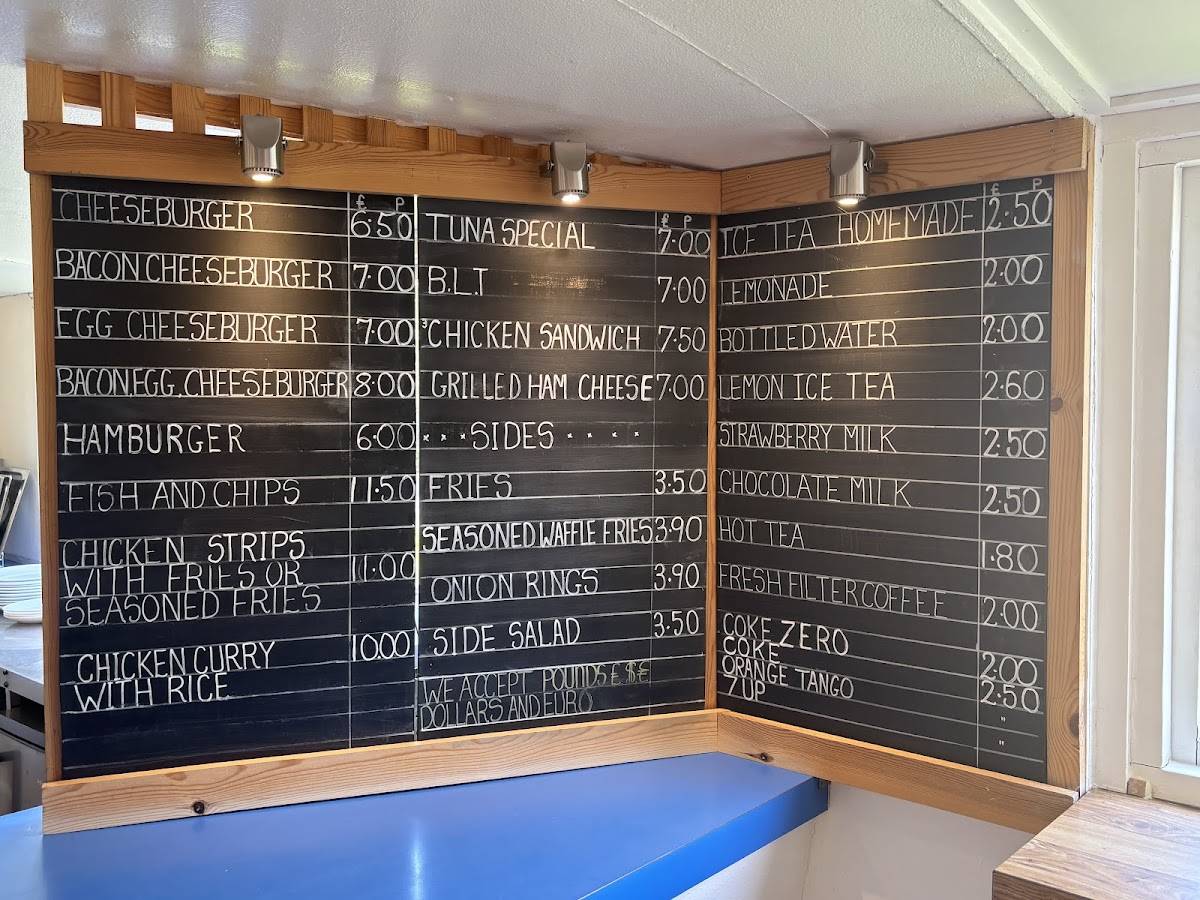 £ P
CHEESEBURGER 6.50
BACON CHEESEBURGER 7.00
EGG CHEESEBURGER 7.00
BACON.EGG.CHEESEBURGER 8.00
HAMBURGER 6.00
FISH AND CHIPS 11.50
CHICKEN STRIPS
WITH FRIES OR 11.00
SEASONED FRIES
CHICKEN CURRY 1000
WITH RICE
£ P
TUNA SPECIAL 7.00
B.L.T 7.00
CHICKEN SANDWICH 7.50
GRILLED HAM CHEESE 7.00
SIDES
FRIES 3.50
SEASONED WAFFLE FRIES 3.90
ONION RINGS 3.90
SIDE SALAD 3.50
WE ACCEPT POUNDS £ $ €
DOLLARS AND EURO
£ P
ICE TEA HOMEMADE 2.50
LEMONADE 2.00
BOTTLED WATER 2.00
LEMON ICE TEA 2.60
STRAWBERRY MILK 2.50
CHOCOLATE MILK 2.50
HOT TEA 1.80
FRESH FILTER COFFEE 2.00
COKE ZERO 2.00
COKE 2.50
ORANGE TANGO "
7 UP "